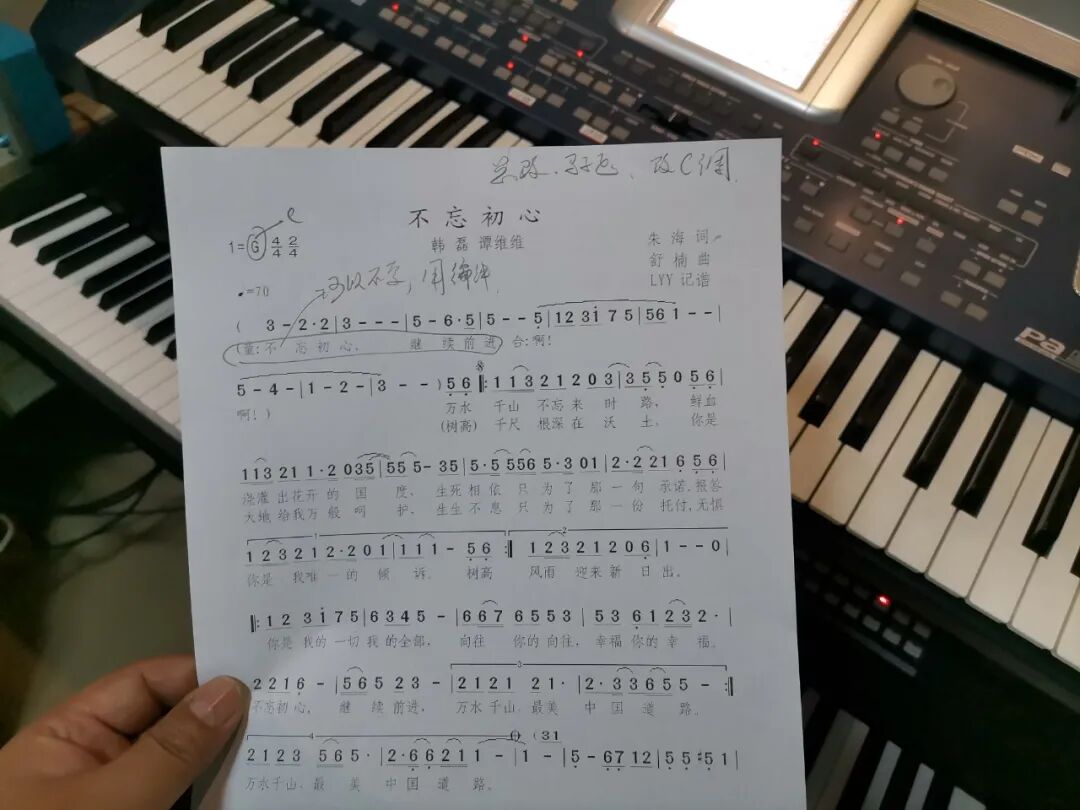 改C调
不忘初心
1=G 4/4 2/4 C
韩磊 谭维维
朱海 词
舒楠 曲
LYY 记谱
=70
可以不要,用编件
( 3 - 2· 2 | 3 - - - | 5 - 6· 5 | 5 - - 5 | 1 2 3 i 7 5 | 5 6 1 - - |
(童:不忘初心, 继续前进 合:啊!
5 - 4 - | 1 - 2 - | 3 - - ) 5 6 ‖: 1 1 3 2 1 2 0 3 | 3 5 5 0 5 6 |
啊!) 万水 千山 不忘来时路, 鲜血
(树高) 千尺 根深在沃土, 你是
1 1 3 2 1 1· 2 0 3 5 | 5 5 5 - 3 5 | 5· 5 5 5 6 5· 3 0 1 | 2· 2 2 1 6 5 6 |
浇灌出花开的国度, 生死相依只为了那一句承诺.报答
大地给我万般呵护, 生生不息只为了那一份托付,无惧
1 2 3 2 1 2· 2 0 1 | 1 1 1 - 5 6 :‖ 1 2 3 2 1 2 0 6 | 1 - - 0 |
你是 我唯一的倾诉. 树高 风雨 迎来新日出.
‖: 1 2 3 i 7 5 | 6 3 4 5 - | 6 6 7 6 5 5 3 | 5 3 6 1 2 3 2· |
你是我的一切我的全部, 向往 你的向往, 幸福你的幸福。
2 2 1 6 - | 5 6 5 2 3 - | 2 1 2 1 2 1· | 2· 3 3 6 5 5 - :‖
不忘初心, 继续前进, 万水千山.最美 中国道路.
2 1 2 3 5 6 5· | 2· 6 6 2 1 1 - | 1 - (3 1 | 5 - 6 7 1 2 | 5 5 #5 1 |
万水千山、最美 中国道路。
Pa